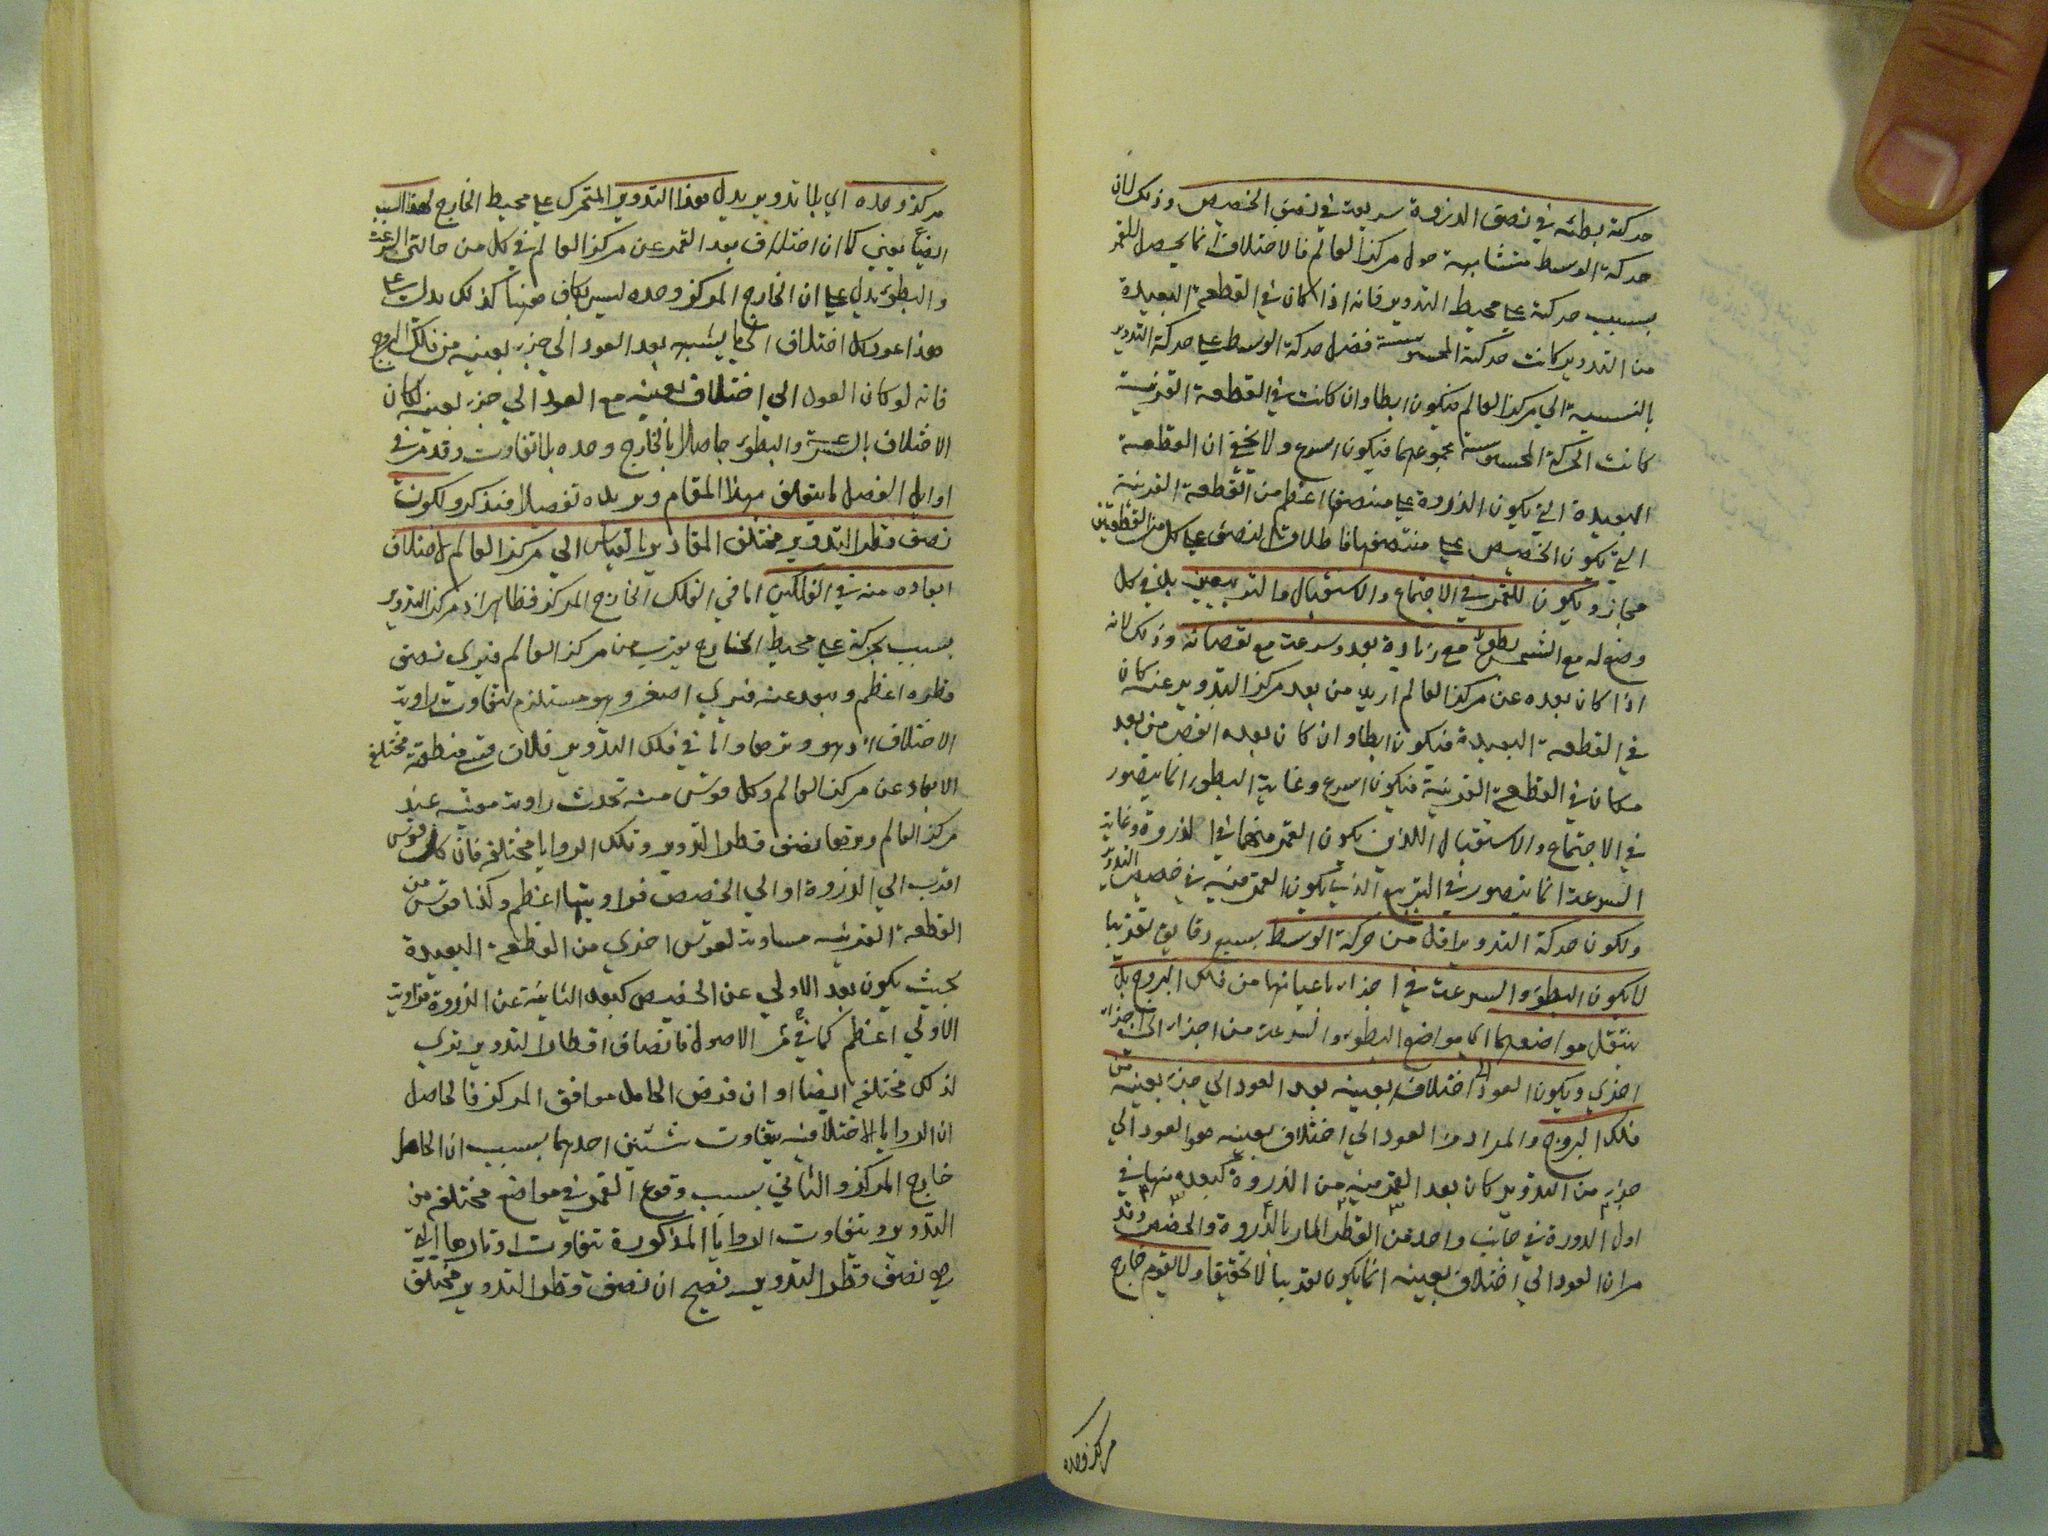 حركته بطيئة في نصف الذروة سريعة في نصف الحضيض وذلك لان
حركة الوسط متشابهة حول مركز العالم فالاختلاف انما يحصل للقمر
بسبب حركته على محيط التدوير فانه اذا كان في القطعة البعيدة
من التدوير كانت حركته المحسوسة فضل حركة الوسط على حركة التدوير
بالنسبة الى مركز العالم فيكون ابطا وان كانت في القطعة القريبة
كانت الحركة المحسوسة مجموعهما فيكون اسرع ولا يخفى ان القطعة
البعيدة التي يكون الذروة على منتصفها اعظم من القطعة القريبة
التي يكون الحضيض على منتصفها فاطلاق النصف على كل من القطعتين
مجاز ويكون للقمر في الاجتماع والاستقبال والتربيعين بل في كل
وضع له مع الشمس بطوء مع زيادة بعد وسرعة مع نقصانه وذلك لانه
اذا كان بعده عن مركز العالم ازيد من بعد مركز التدوير عنه كان
في القطعة البعيدة فيكون ابطا وان كان بعده انقص من بعد
مكان في القطعة القريبة فيكون اسرع وغاية البطوء انما يتصور
في الاجتماع والاستقبال اللذين يكون القمر فيهما في الذروة وغاية
السرعة انما يتصور في التربيع الذي يكون القمر فيه في حضيض التدوير
ولكون حركة التدوير اقل من حركة الوسط بسبع دقايق تقريبا
لا يكون البطوء والسرعة في اجزاء باعيانها من فلك البروج بل
ينتقل مواضعهما اي مواضع البطوء والسرعة من اجزاء الى اجزاء
اخرى ويكون العود الى اختلاف بعينه بعد العود الى جزء بعينه من
فلك البروج والمراد من العود الى اختلاف بعينه هو العود الى
جزء من التدوير كان بعد القمر فيه من الذروة كبعده منها في
اول الدورة في جانب واحد من القطر المار بالذروة والحضيض وقد
مر ان العود الى اختلاف بعينه انما يكون تقريبا لا تحقيقا ولا يقوم خارج
مركز وحده
مركز وحده اي بلا تدوير بدل هذا التدوير المتحرك على محيط الخارج لهذا السبب
ايضا يعني كما ان اختلاف بعد القمر عن مركز العالم في كل من حالتي السرعة
والبطوء يدل على ان الخارج المركز وحده ليس بكاف ههنا كذلك يدل على
هذا عود كل اختلاف الى ما يشبهه بعد العود الى جزء بعينه من فلك البروج
فانه لو كان العود الى اختلاف بعينه مع العود الى جزء بعينه لكان
الاختلاف بالسرعة والبطوء حاصلا بالخارج وحده بلا تفاوت وقد مر في
اوايل الفصل ما يتعلق بهذا المقام ويزيده تفصيلا فتذكر ولكون
نصف قطر التدوير مختلف المقادير بالقياس الى مركز العالم لاختلاف
ابعاده منه في الفلكين اما في الفلك الخارج المركز فظاهر اذ مركز التدوير
بسبب حركته على محيط الخارج يقرب من مركز العالم فيرى نصف
قطره اعظم ويبعد عنه فيرى اصغر وهو مستلزم لتفاوت زاوية
الاختلاف اذ هو وترها واما في فلك التدوير فلان قسي منطقته مختلفة
الابعاد عن مركز العالم وكل قوس منه تحدث زاوية معينة عند
مركز العالم وترها نصف قطر التدوير وتلك الزوايا مختلفة فان كل قوس
اقرب الى الذروة او الى الحضيض فزاويتها اعظم وكذا قوس من
القطعة القريبة مساوية لقوس اخرى من القطعة البعيدة
بحيث يكون بعد الاولى عن الحضيض كبعد الثانية عن الذروة فزاوية
الاولى اعظم كما في الاصول فانصاف اقطار التدوير ترى
لذلك مختلفة ايضا وان فرض الحامل موافق المركز فالحاصل
ان الزوايا الاختلافية يتفاوت بشيئين احدهما بسبب ان الحامل
خارج المركز والثاني بسبب وقوع القمر في مواضع مختلفة من
التدوير وبتفاوت الزوايا المذكورة تتفاوت اوتارها التي
هي نصف قطر التدوير فصح ان نصف قطر التدوير مختلف